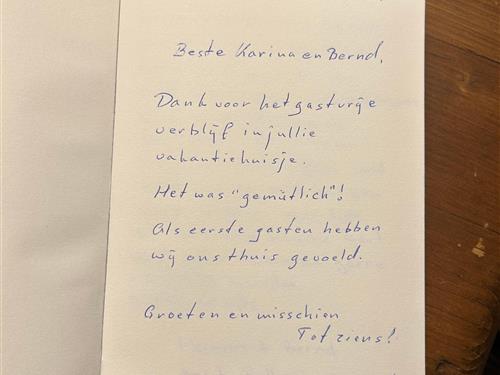 Beste Karina en Bernd,
Dank voor het gastvrije
verblijf in jullie
vakantiehuisje.
Het was "gemütlich"!
Als eerste gasten hebben
wij ons thuis gevoeld.
Groeten en misschien
Tot ziens!